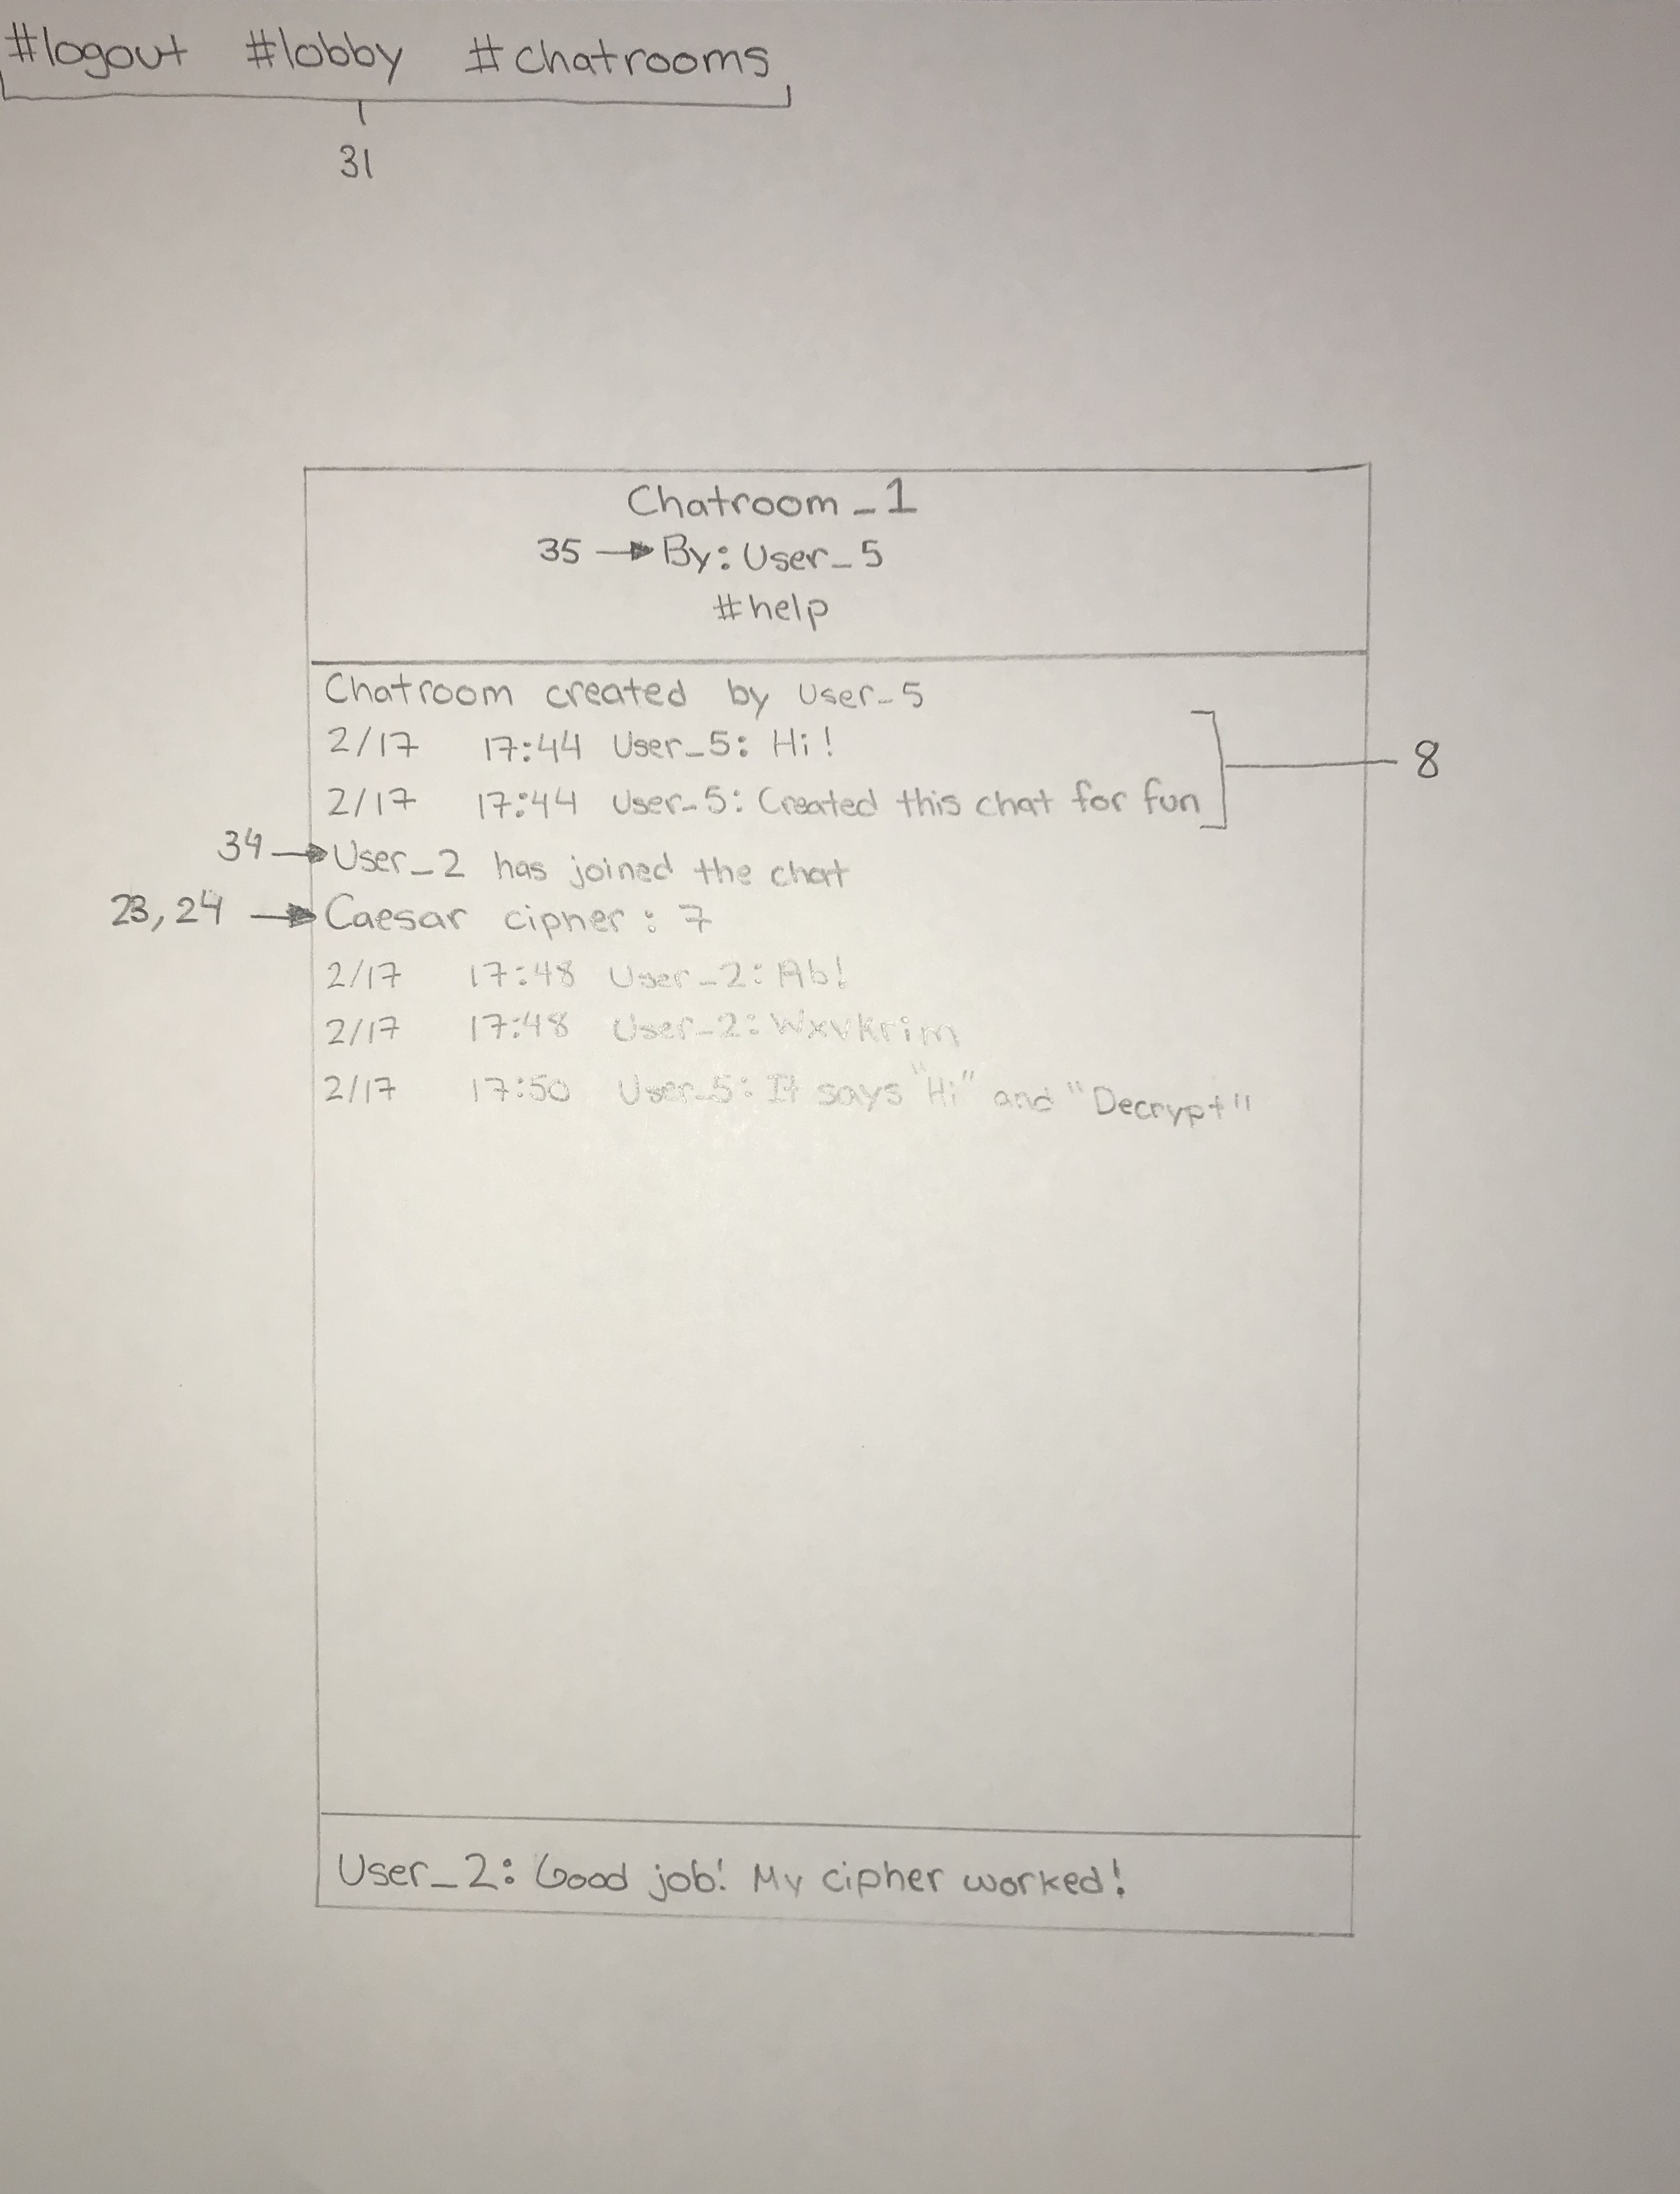 #logout #lobby #chatrooms
31
Chatroom_1
35 → By: User_5
#help
Chatroom created by User_5
2/17 17:44 User_5: Hi!
2/17 17:44 User_5: Created this chat for fun
8
34 → User_2 has joined the chat
23, 24 → Caesar cipher: 7
2/17 17:48 User_2: Ab!
2/17 17:48 User_2: Wxvkrim
2/17 17:50 User_5: It says "Hi" and "Decrypt"
User_2: Good job! My cipher worked!